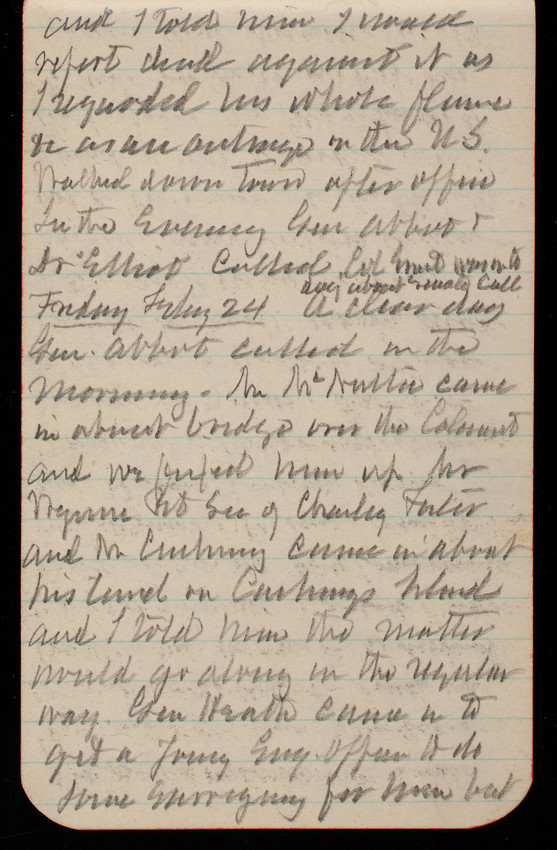 and I told him I would
report dead against it as
I regarded his whole
as an outrage on the U.S.
Walked down town after office
In the Evening Gen Abbot &
Dr Elliot called Col Ernst was in to
say about Grady Call
Friday Feby 24 A clear day
Gen. Abbot called in the
morning. Mr came
in about bridge over the
and we him up. Mr
Sec of Charley Foster
and Mr Cushing came in about
his land on Cushings Island
and I told him the matter
would go along in the regular
way. Gen came in to
get a young Eng. Officer to do
some Surveying for him but